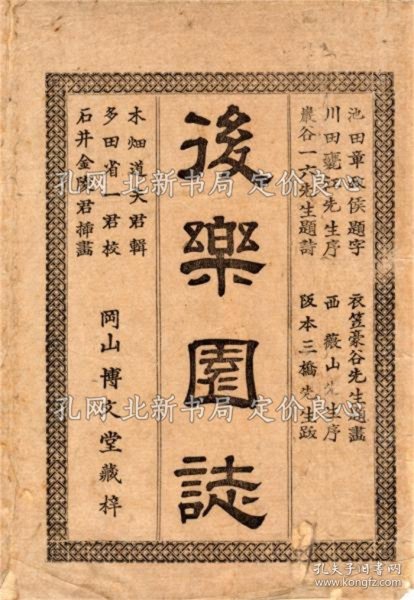 池田章政侯題字
川田甕江先生序
巖谷一六先生題詩
衣笠豪谷先生題畫
西薇山先生序
阪本三橋先生跋
後樂園誌
木畑道夫君輯
多田省一君校
石井金陵君挿畫
岡山博文堂藏梓
孔网 北新书局 定价良心
孔网 北新书局 定价良心
孔夫子旧书网